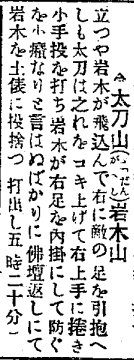 太刀山 岩木山
立つや岩木が飛込んで右に敵の足を引抱へ
しも太刀は之れをコキ上げて右上手に捲き
小手投を打ち岩木が右足を內掛にして防ぐ
を小癪なりと言はぬばかりに佛壇返しにて
岩木を土俵に投捨つ 打出し五時二十分)